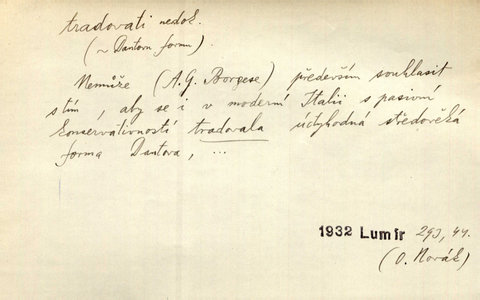 tradovati nedok.
(~ Dantovu formu).
Nemůže (A. G. Borgese) především souhlasit
s tím, aby se i v moderní Italii s pasivní
konservativností tradovala úctyhodná středověká
forma Dantova, ...
1932 Lumír 293, 44.
(O. Novák)